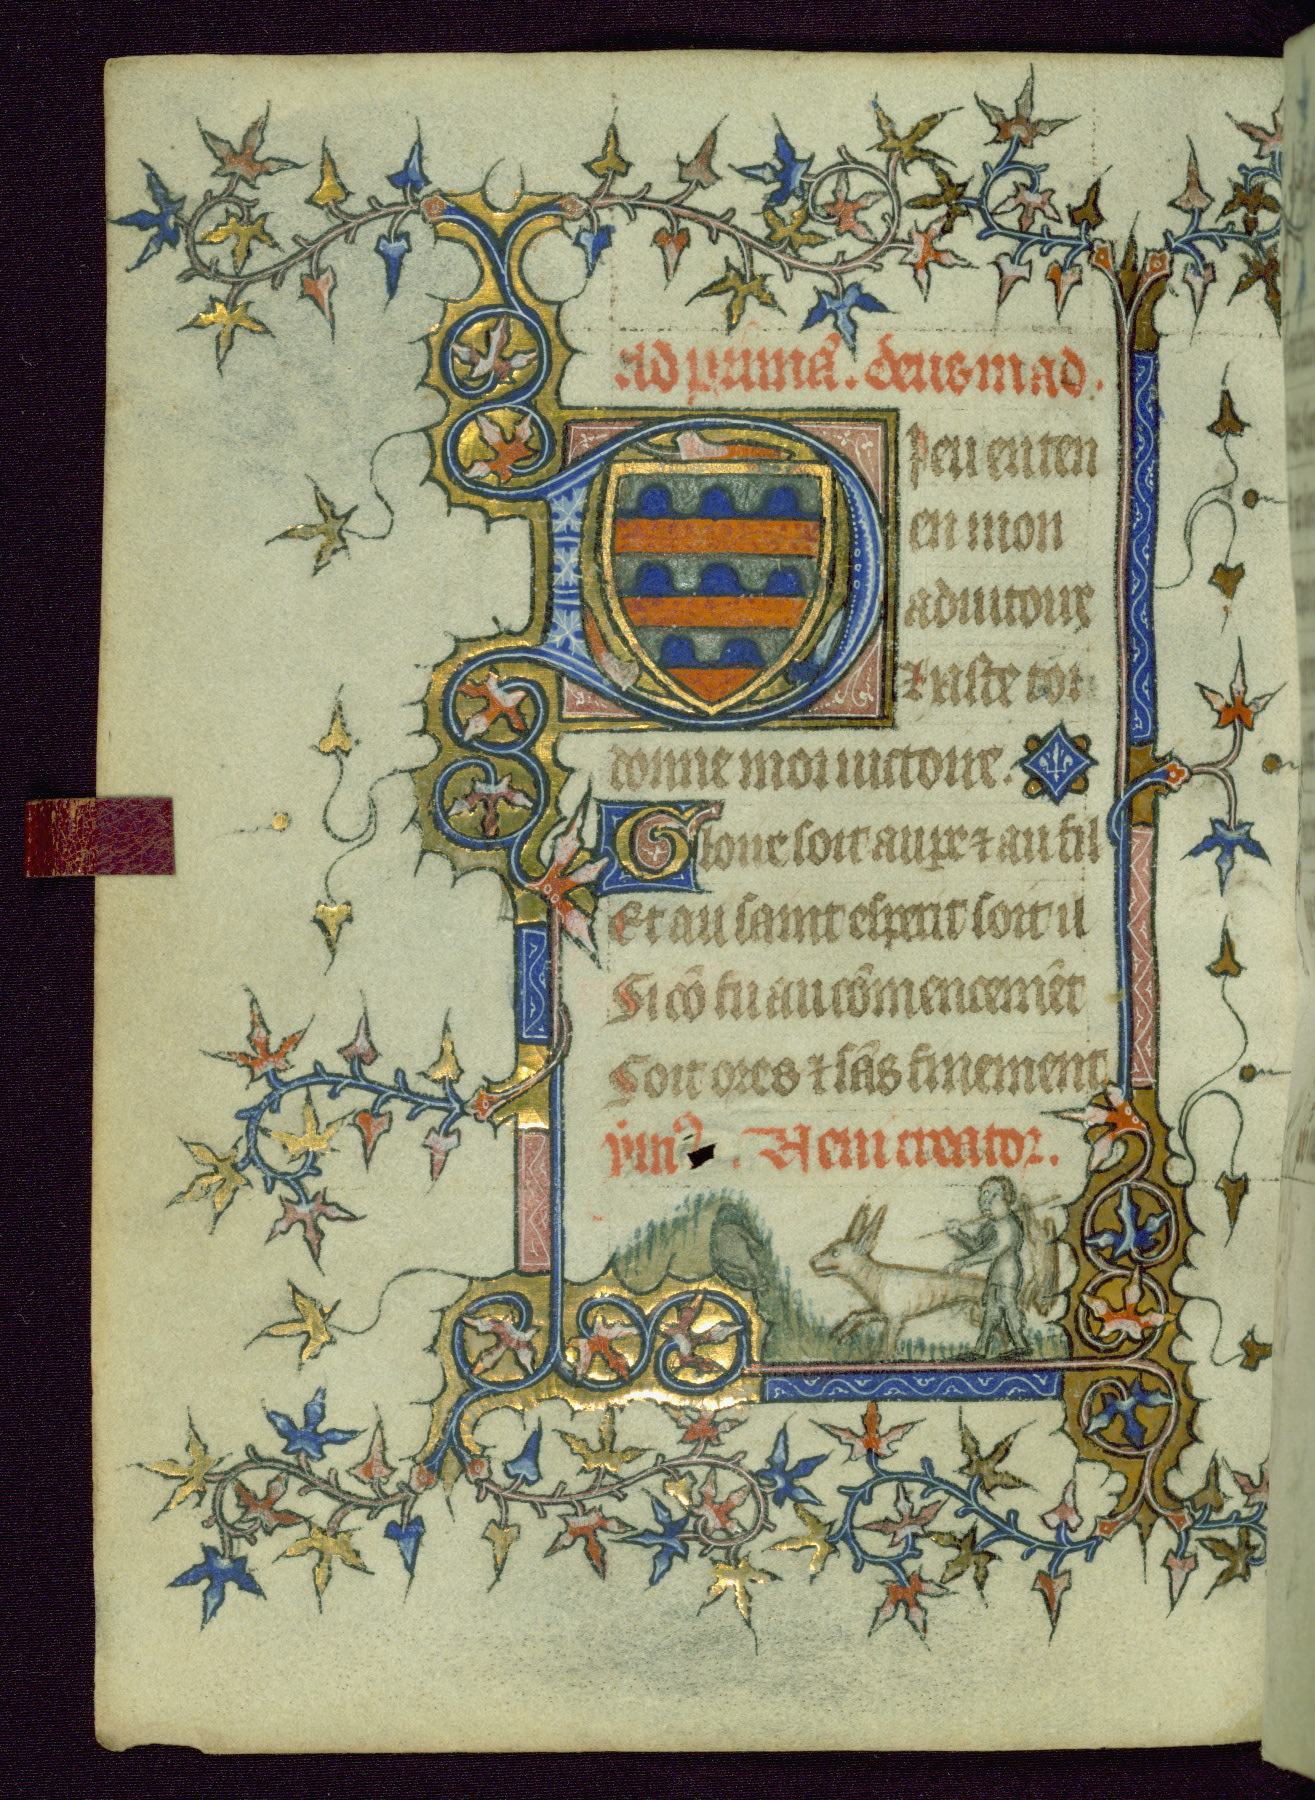 ad prima͂. deus in ad.
Dieu enten
en mon
adiutoire
⁊ uiste tot
donne moi uictoire.
Gloire soit au pe ⁊ au fil
Et au saint esperit soit il
Si cō fu au cōmencemēt
Soit ores ⁊ sās finement
ymꝰ. Veni creator.